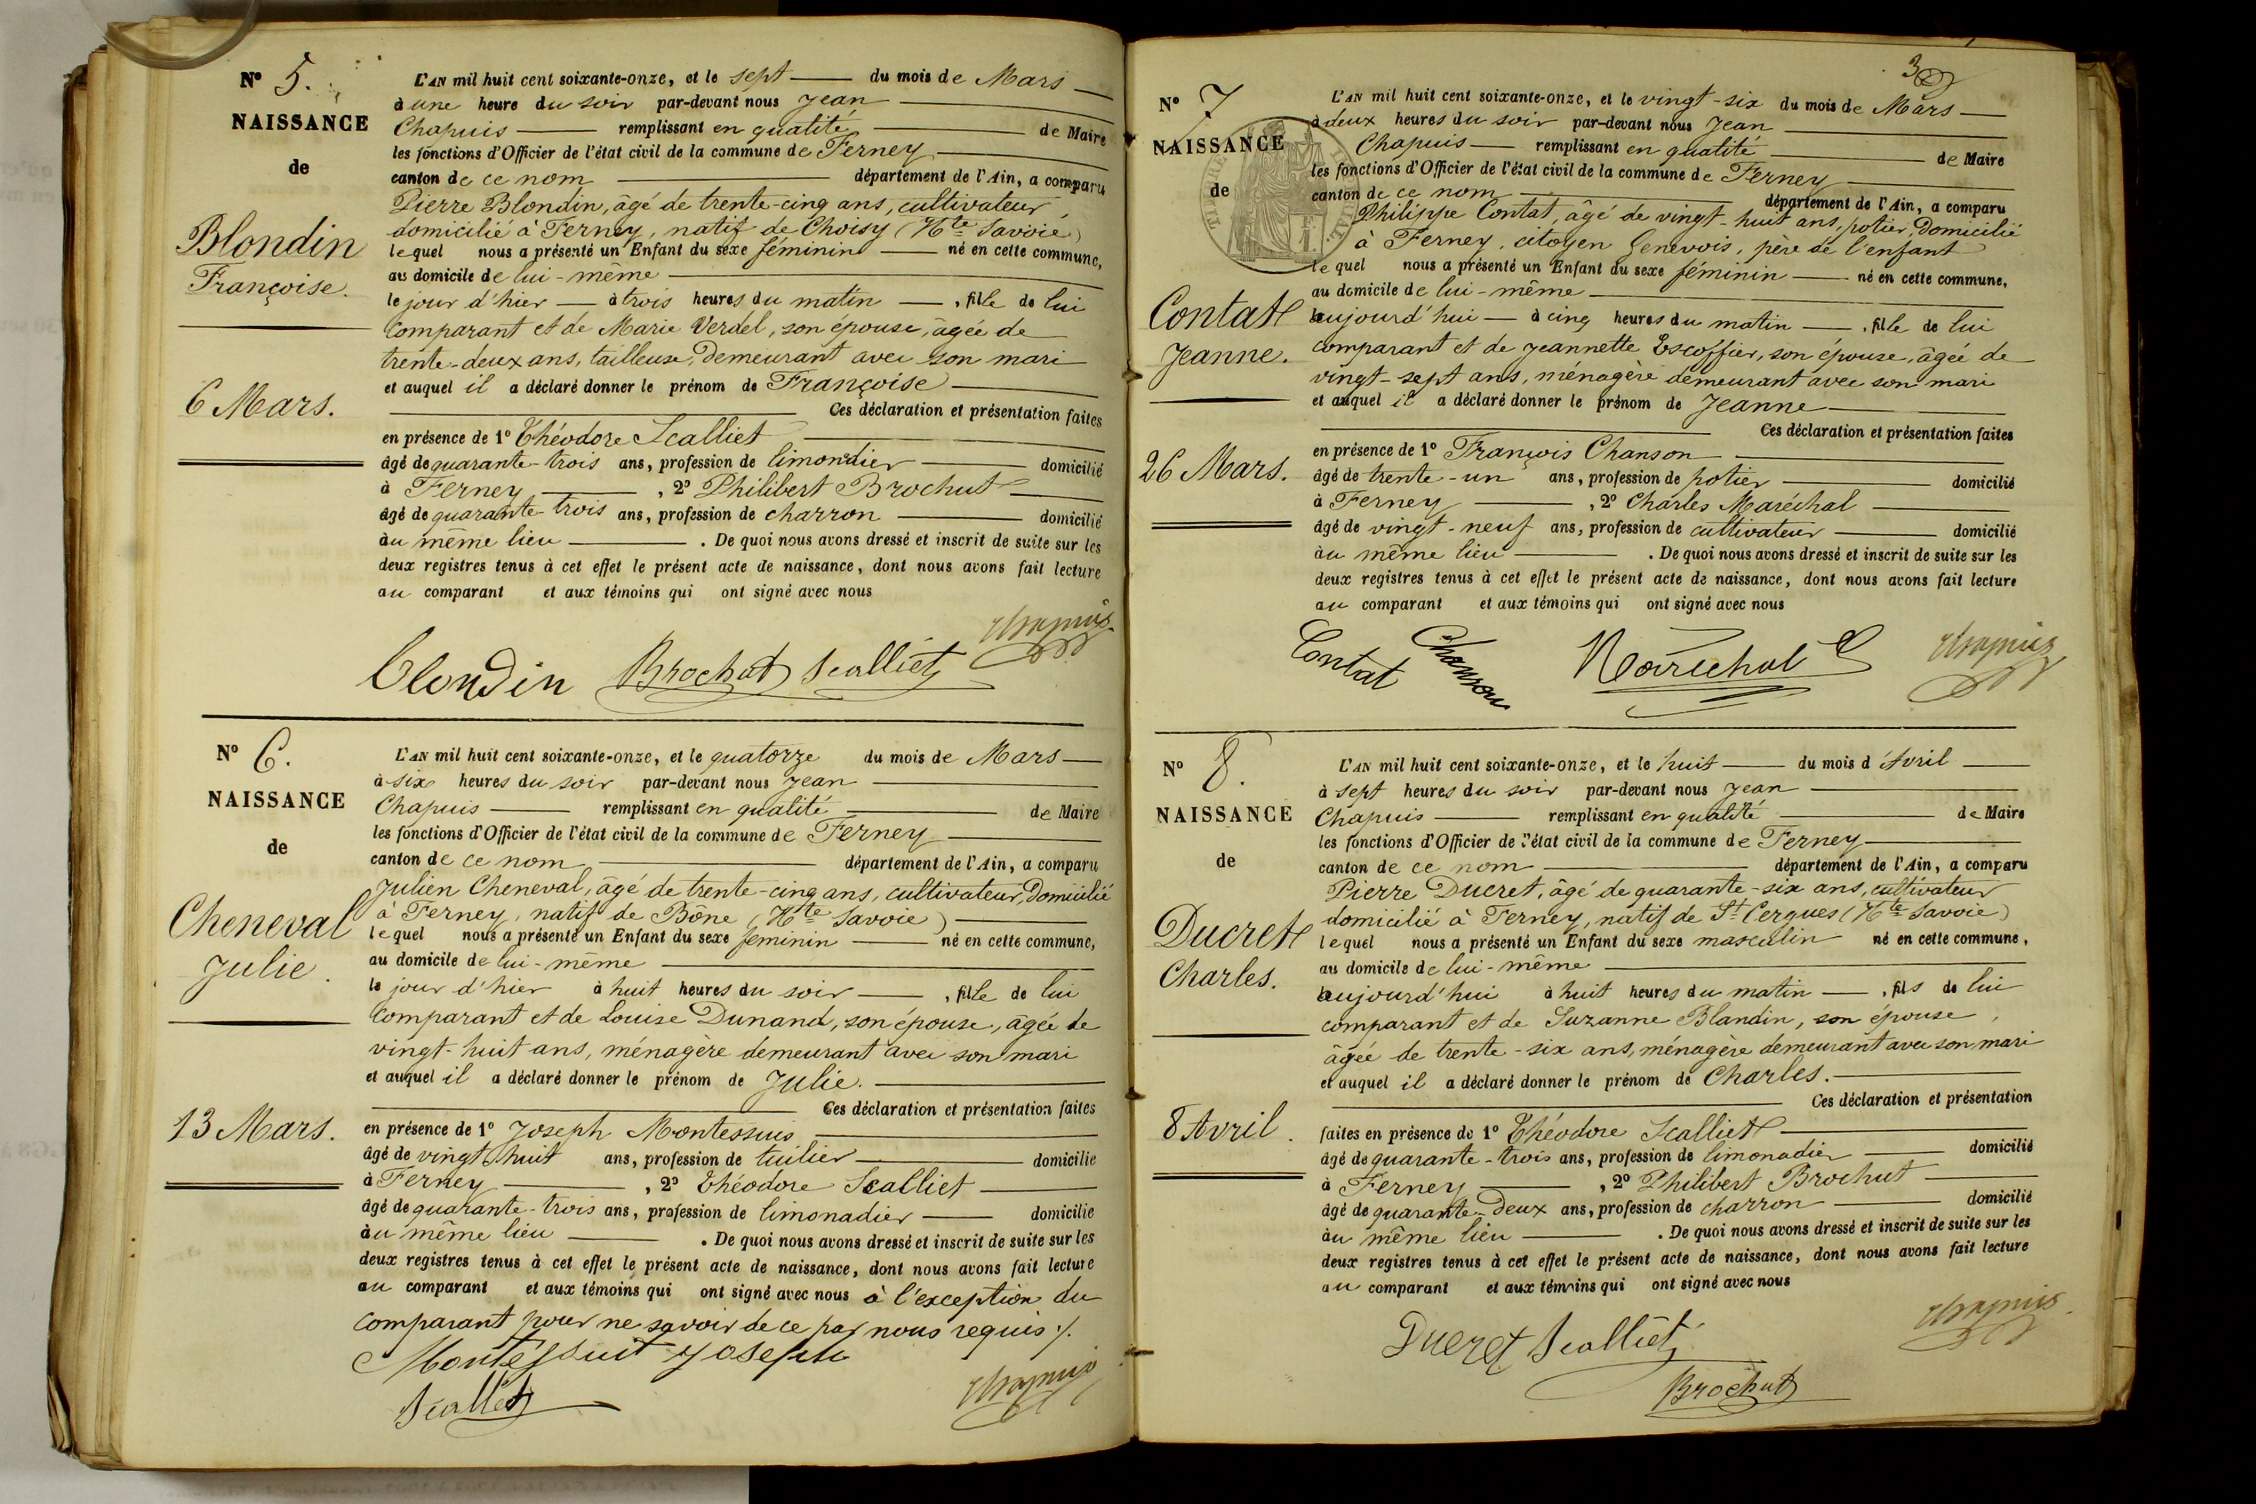 N° 5.
NAISSANCE
de
Blondin
Françoise.
6 Mars.
L'AN mil huit cent soixante-onze, et le sept du mois de Mars
à une heure du soir par-devant nous Jean
Chapuis remplissant en qualité de Maire
les fonctions d'Officier de l'état civil de la commune de Ferney
canton de ce nom département de l'Ain, a comparu
Pierre Blondin, âgé de trente-cinq ans, cultivateur,
domicilié à Ferney, natif de Choisy (Hte Savoie)
lequel nous a présenté un Enfant du sexe féminin né en cette commune,
au domicile de lui-même
le jour d'hier à trois heures du matin, fille de lui
comparant et de Marie Verdel, son épouse, âgée de
trente-deux ans, tailleuse, demeurant avec son mari
et auquel il a déclaré donner le prénom de Françoise
Ces déclaration et présentation faites
en présence de 1° Théodore Scalliet
âgé de quarante-trois ans, profession de limonadier domicilié
à Ferney, 2° Philibert Brochut
âgé de quarante-trois ans, profession de charron domicilié
au même lieu. De quoi nous avons dressé et inscrit de suite sur les
deux registres tenus à cet effet le présent acte de naissance, dont nous avons fait lecture
au comparant et aux témoins qui ont signé avec nous
Chapuis
blondin Brochut Scalliet
N° 6.
NAISSANCE
de
Cheneval
Julie.
13 Mars.
L'AN mil huit cent soixante-onze, et le quatorze du mois de Mars
à six heures du soir par-devant nous Jean
Chapuis remplissant en qualité de Maire
les fonctions d'Officier de l'état civil de la commune de Ferney
canton de ce nom département de l'Ain, a comparu
Julien Cheneval, âgé de trente-cinq ans, cultivateur, domicilié
à Ferney, natif de Bône (Hte Savoie)
lequel nous a présenté un Enfant du sexe féminin né en cette commune,
au domicile de lui-même
le jour d'hier à huit heures du soir, fille de lui
comparant et de Louise Dunand, son épouse, âgée de
vingt-huit ans, ménagère demeurant avec son mari
et auquel il a déclaré donner le prénom de Julie.
Ces déclaration et présentation faites
en présence de 1° Joseph Montessuis
âgé de vingt huit ans, profession de tuilier domicilié
à Ferney, 2° Théodore Scalliet
âgé de quarante-trois ans, profession de limonadier domicilié
au même lieu. De quoi nous avons dressé et inscrit de suite sur les
deux registres tenus à cet effet le présent acte de naissance, dont nous avons fait lecture
au comparant et aux témoins qui ont signé avec nous à l'exception du
comparant pour ne savoir de ce par nous requis ./.
Montessuit Joseph
Scalliet Chapuis
3
N° 7
NAISSANCE
de
Contat
Jeanne.
26 Mars.
L'AN mil huit cent soixante-onze, et le vingt-six du mois de Mars
à deux heures du soir par-devant nous Jean
Chapuis remplissant en qualité de Maire
les fonctions d'Officier de l'état civil de la commune de Ferney
canton de ce nom département de l'Ain, a comparu
Philippe Contat, âgé de vingt-huit ans, potier, domicilié
à Ferney, citoyen Genevois, père de l'enfant
lequel nous a présenté un Enfant du sexe féminin né en cette commune,
au domicile de lui-même
aujourd'hui à cinq heures du matin, fille de lui
comparant et de Jeannette Escoffier, son épouse, âgée de
vingt-sept ans, ménagère demeurant avec son mari
et auquel il a déclaré donner le prénom de Jeanne
Ces déclaration et présentation faites
en présence de 1° François Chanson
âgé de trente-un ans, profession de potier domicilié
à Ferney, 2° Charles Maréchal
âgé de vingt-neuf ans, profession de cultivateur domicilié
au même lieu. De quoi nous avons dressé et inscrit de suite sur les
deux registres tenus à cet effet le présent acte de naissance, dont nous avons fait lecture
au comparant et aux témoins qui ont signé avec nous
Contat Chanson Maréchal C Chapuis
N° 8.
NAISSANCE
de
Ducret
Charles.
8 Avril.
L'AN mil huit cent soixante-onze, et le huit du mois d'Avril
à sept heures du soir par-devant nous Jean
Chapuis remplissant en qualité de Maire
les fonctions d'Officier de l'état civil de la commune de Ferney
canton de ce nom département de l'Ain, a comparu
Pierre Ducret, âgé de quarante-six ans, cultivateur
domicilié à Ferney, natif de St Cergues (Hte Savoie)
lequel nous a présenté un Enfant du sexe masculin né en cette commune,
au domicile de lui-même
aujourd'hui à huit heures du matin, fils de lui
comparant et de Suzanne Blandin, son épouse,
âgée de trente-six ans, ménagère demeurant avec son mari
et auquel il a déclaré donner le prénom de Charles.
Ces déclaration et présentation
faites en présence de 1° Théodore Scalliet
âgé de quarante-trois ans, profession de limonadier domicilié
à Ferney, 2° Philibert Brochut
âgé de quarante-deux ans, profession de charron domicilié
au même lieu. De quoi nous avons dressé et inscrit de suite sur les
deux registres tenus à cet effet le présent acte de naissance, dont nous avons fait lecture
au comparant et aux témoins qui ont signé avec nous
Chapuis
Ducret Scalliet
Brochut